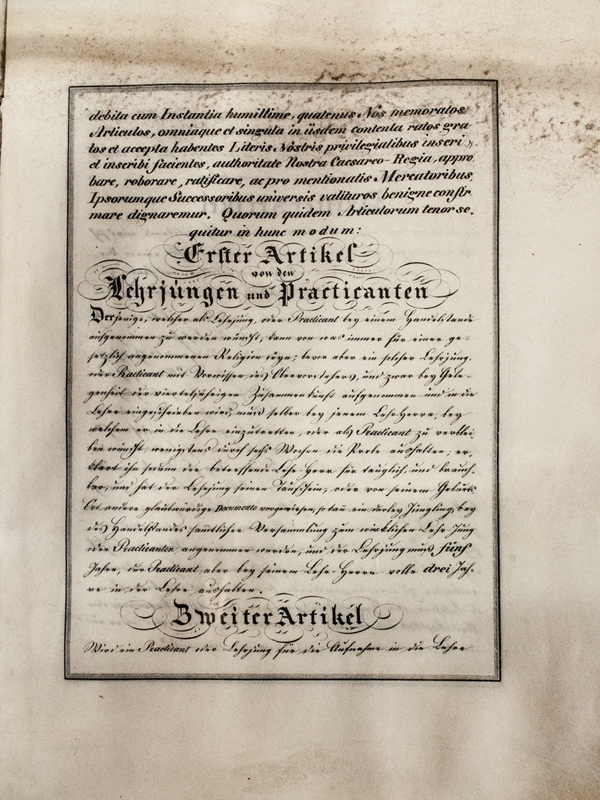 debita cum Instantia humillime, quatenus Nos memoratos
Articulos, omniaque et singula in iisdem contenta ratos gra-
tos et accepta habentes Literis Nostris privilegialibus inseri
et inscribi facientes, authoritate Nostra Caesareo-Regia, appro
bare, roborare, ratificare, ac pro mentionatis Mercatoribus,
Ipsorumque Successoribus universis valituros benigne confir
mare dignaremur. Quorum quidem Articulorum tenor se-
quitur in hunc modum:
Erster Artikel
von den
Lehrjungen und Practicanten
Derjenige, welcher als Lehrjung, oder Practicant bey einem Handelstande
aufgenommen zu werden wünscht, kann von was immer für einer ge-
setzlich angenommenen Religion seyn; bevor aber ein solcher Lehrjung,
oder Practicant mit Vorwissen des Obervorstehers, und zwar bey Gele-
genheit der vierteljährigen Zusammenkunft aufgenommen und in die
Lehre eingeschrieben wird, muß selber bey jenem Lehr-Herrn, bey
welchem er in die Lehre einzutretten, oder als Practicant zu verblei
ben wünscht, wenigstens durch sechs Wochen die Probe aushalten, er-
klärt ihn sodann der betreffende Lehr Herr für tauglich, und brauch-
bar, und hat der Lehrjung seinen Taufschein, oder von seinem Geburts
Ort andere glaubwürdige Documente vorgewiesen, so kann ein derley Jüngling, bey
des Handelstandes sämtlicher Versammlung zum wirklichen Lehr-Jung
oder Practicanten angenommen werden, und der Lehrjung muß fünf
Jahre, der Practicant aber bey seinem Lehr-Herrn volle drei Jah-
re in der Lehre aushalten.
Zweiter Artikel
Wird ein Practicant oder Lehrjung für die Aufnahme in die Lehre